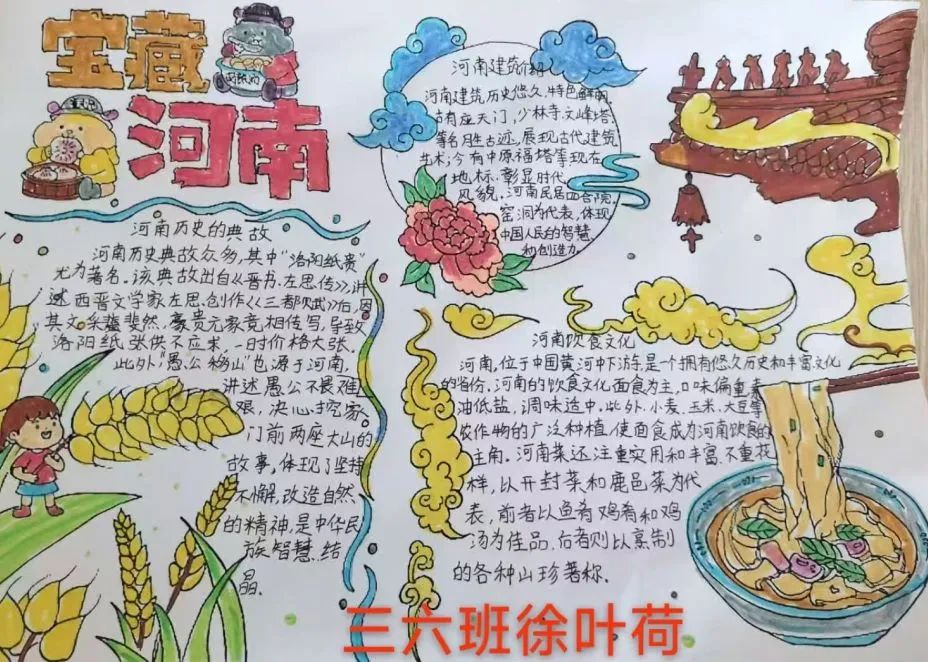 宝藏
河南
河南历史的典故
河南历史典故众多,其中“洛阳纸贵”
尤为著名。该典故出自《晋书.左思传》,讲
述西晋文学家左思创作《三都赋》后,因
其文采斐然,豪贵元家竞相传写,导致
洛阳纸张供不应求,一时价格大张、
此外“愚公移山”也源于河南,
讲述愚公不畏艰
艰,决心挖家
门前两座大山的
故事,体现了坚持
不懈,改造自然
的精神,是中华民
族智慧.结
晶.
河南建筑介绍
河南建筑历史悠久,特色鲜明,
古有应天门,少林寺文峰塔,
等名胜古迹,展现古代建筑
艺术,今有中原福塔等现在
地标,彰显时代
风貌.河南民居四合院,
窑洞为代表,体现
中国人民的智慧
和创造力
河南饮食文化
河南,位于中国黄河中下游,是一个拥有悠久历史和丰富文化
的省份.河南的饮食文化面食为主,口味偏重素
油低盐,调味适中.此外,小麦、玉米、大豆等
农作物的广泛种植,使面食成为河南饮食的
主角.河南菜还注重实用和丰富.不重花
样,以开封菜和鹿邑菜为代
表,前者以鱼肴鸡肴和鸡
汤为佳品.后者则以烹制
的各种山珍著称.
三六班徐叶荷